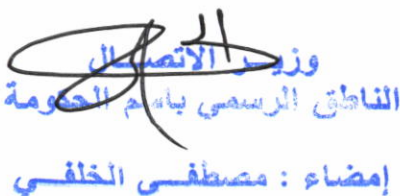 وزير الاتصال
الناطق الرسمي باسم الحكومة
إمضاء : مصطفى الخلفي